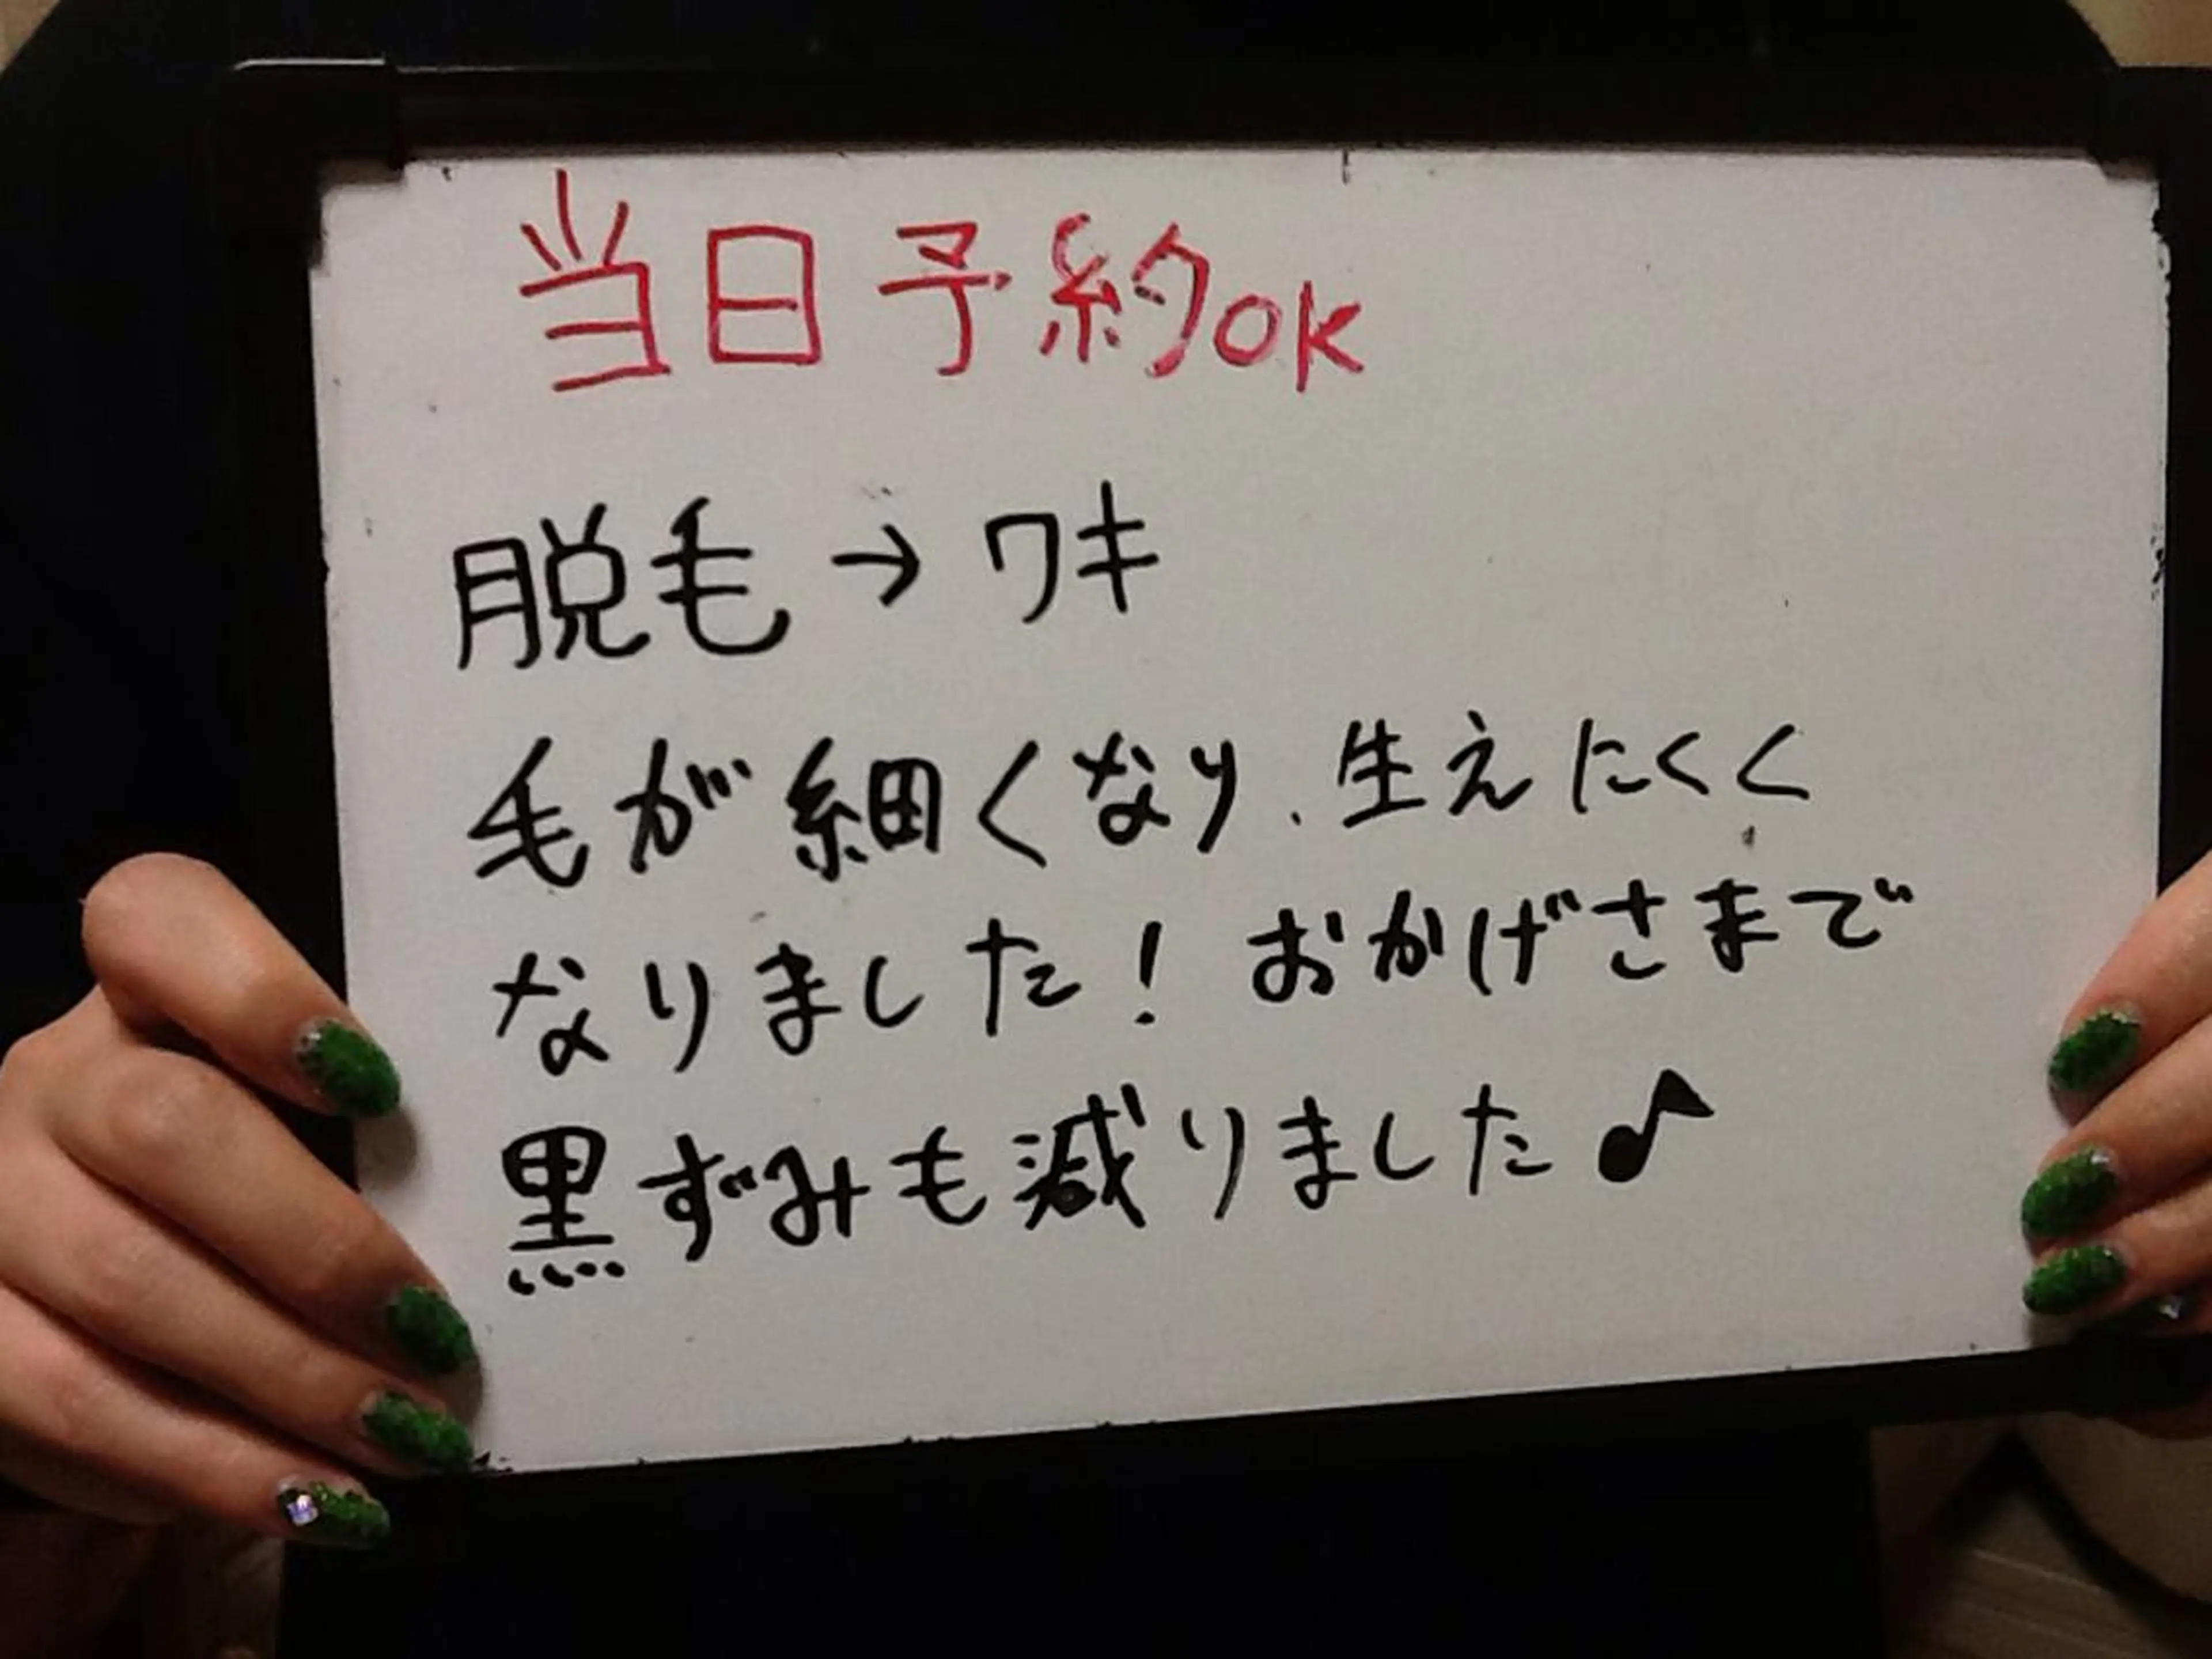 当日予約OK
脱毛→ワキ
毛が細くなり、生えにくく
なりました！おかげさまで
黒ずみも減りました♪